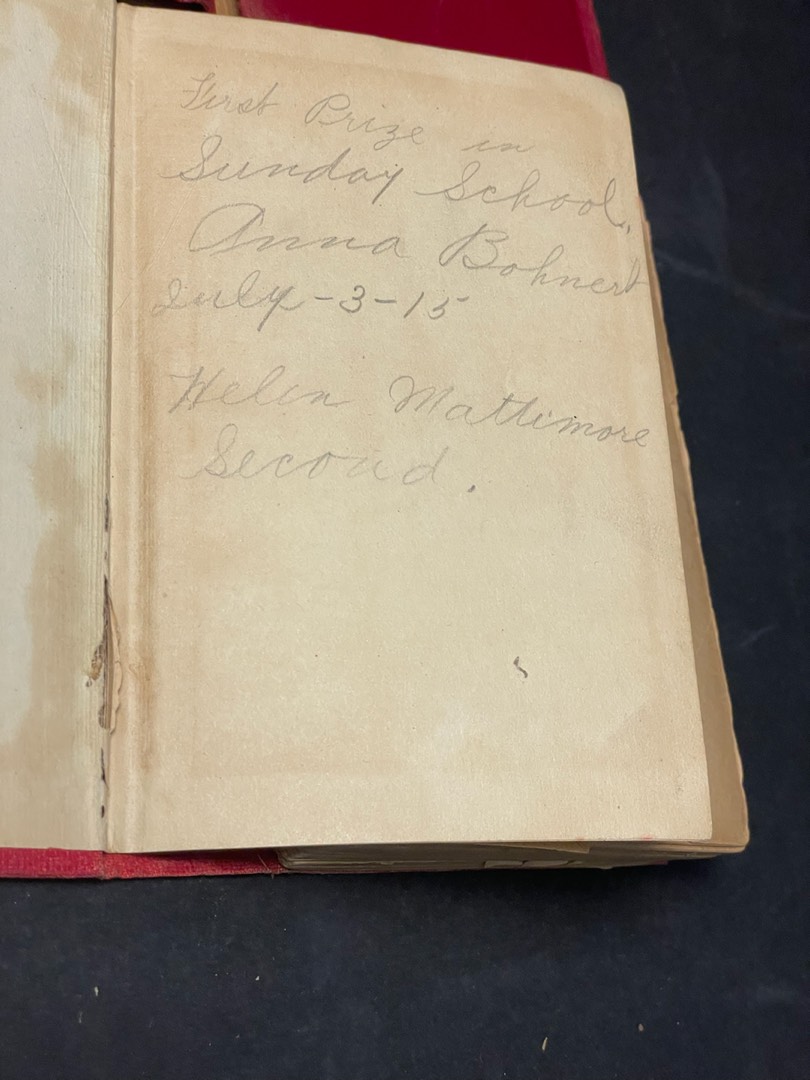 First Prize in
Sunday School.
Anna Bohnert
July-3-15
Helen Mattimore
Second.